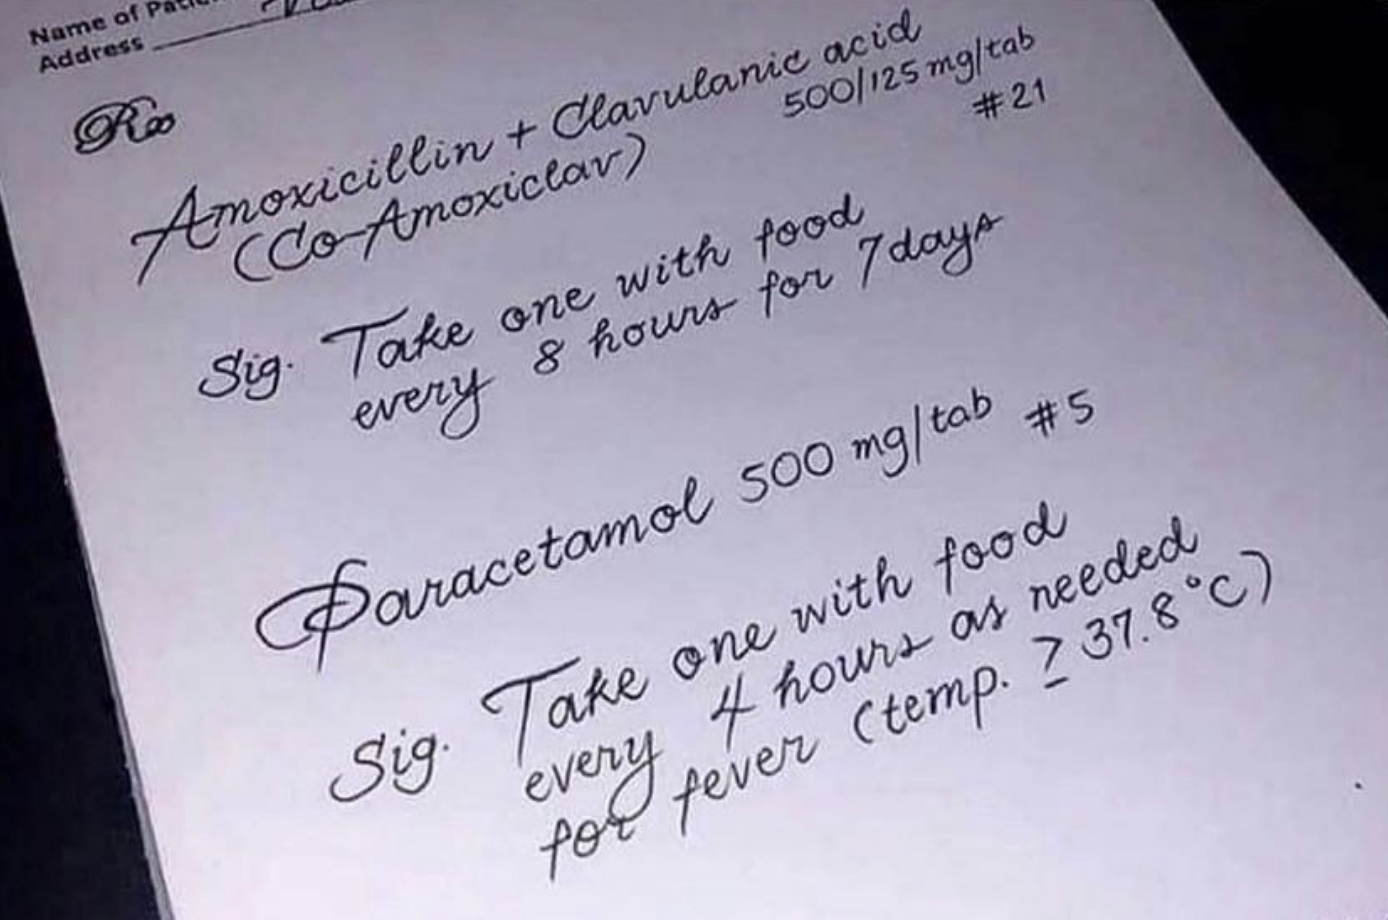 Name of
Address
Rx
Amoxicillin + Clavulanic acid
500/125 mg/tab
(Co-Amoxiclav)
#21
Sig. Take one with food
every 8 hours for 7 days
Paracetamol 500 mg/tab #5
Sig. Take one with food
every 4 hours as needed
for fever (temp. ≥ 37.8°C)